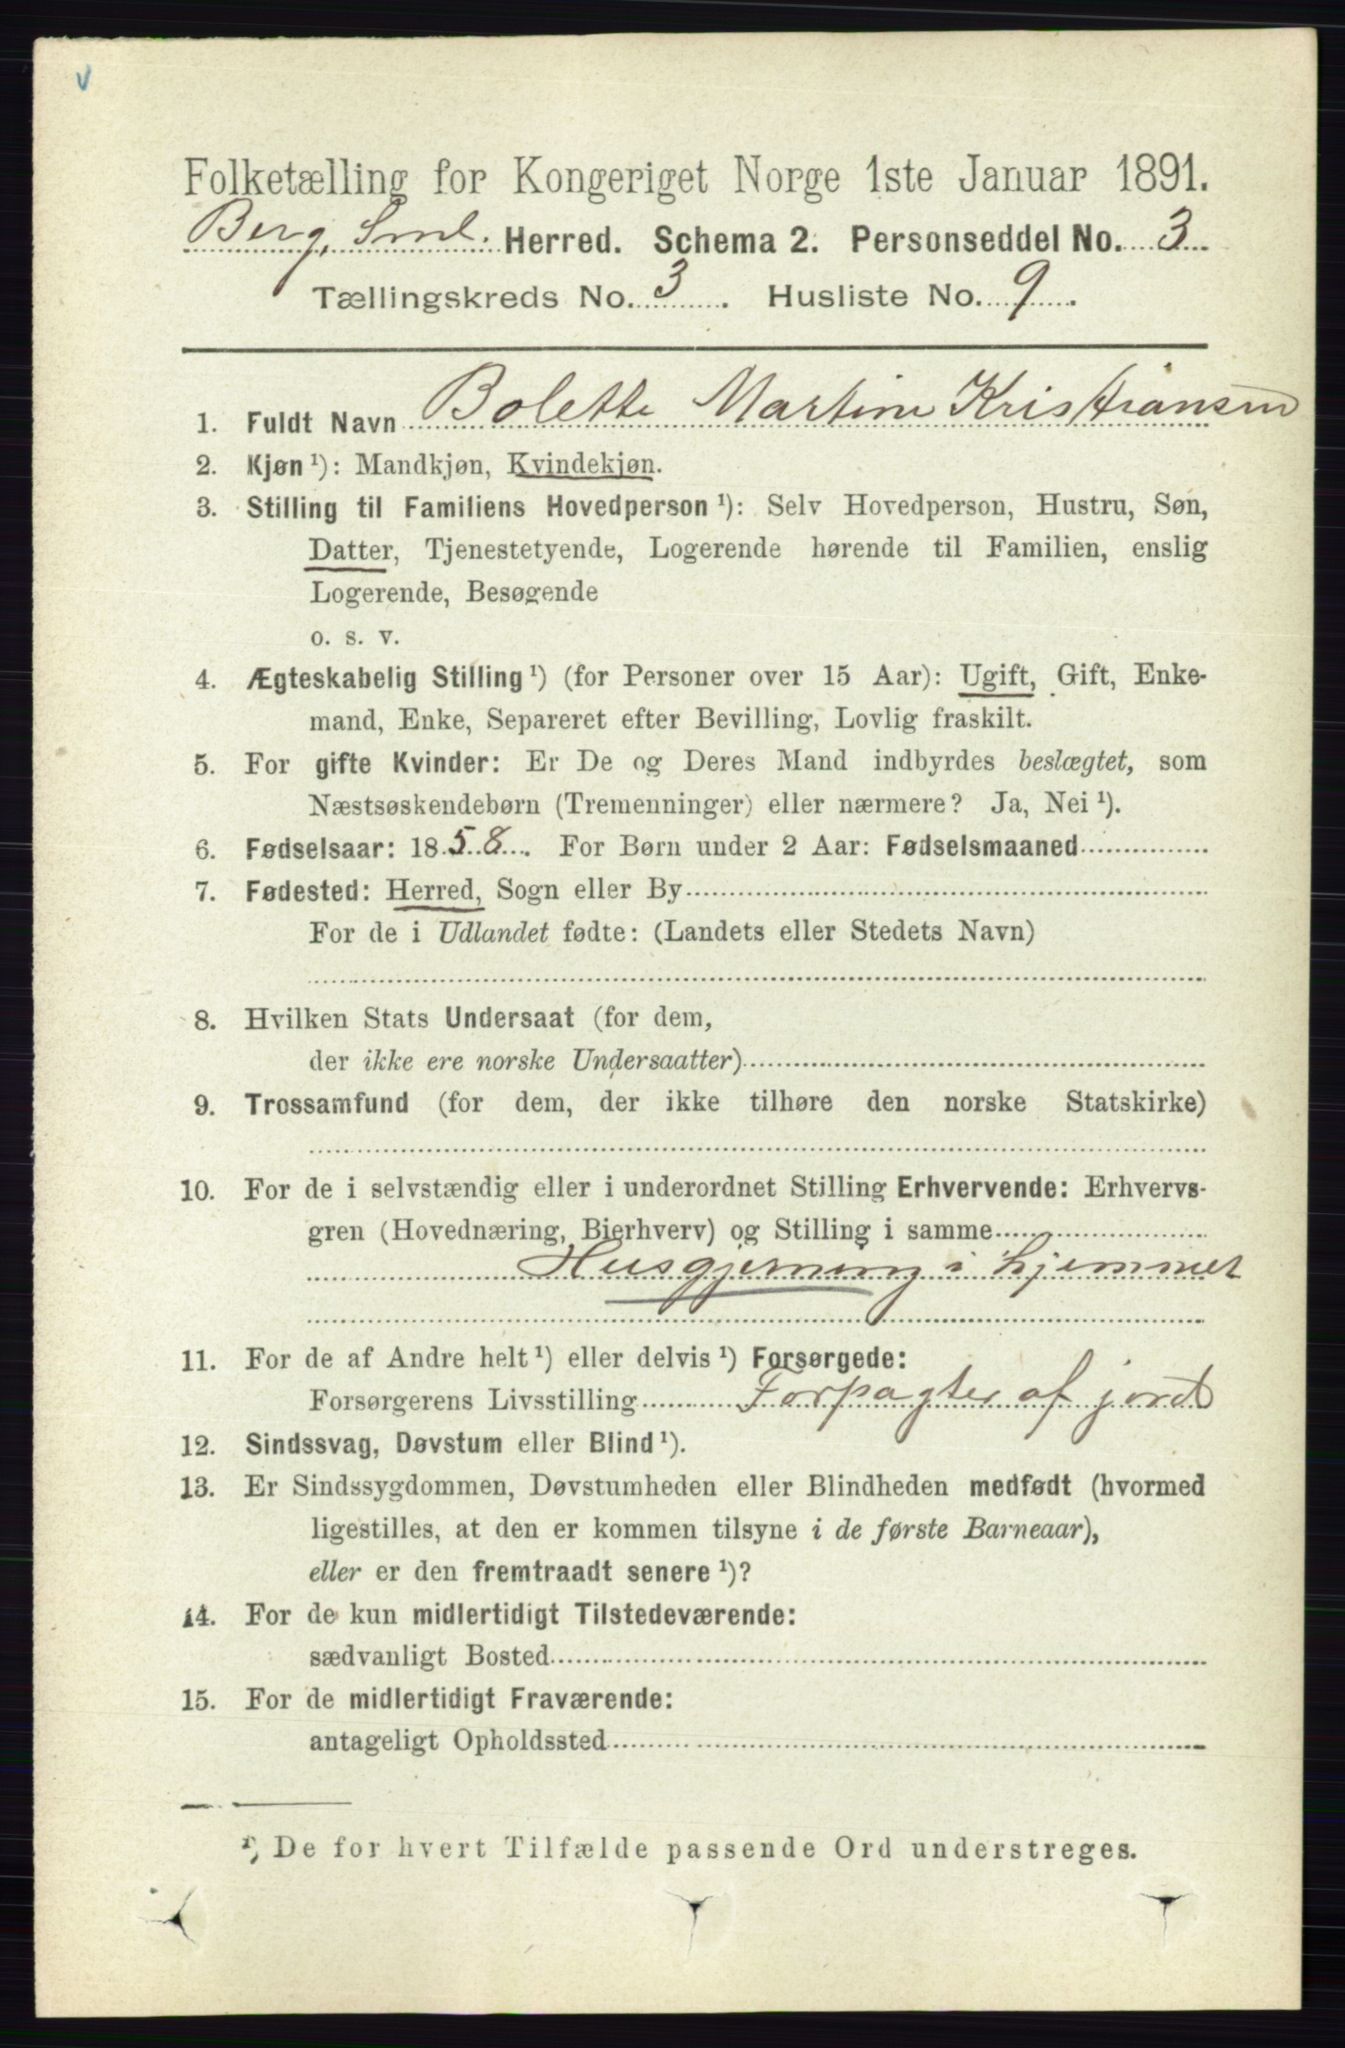 v
Folketælling for Kongeriget Norge 1ste Januar 1891.
Berg, Sml. Herred. Schema 2. Personseddel No. 3
Tællingskreds No. 3. Husliste No. 9.
1. Fuldt Navn Bolette Martine Kristiansen
2. Kjøn ¹): Mandkjøn, Kvindekjøn.
3. Stilling til Familiens Hovedperson ¹): Selv Hovedperson, Hustru, Søn,
Datter, Tjenestetyende, Logerende hørende til Familien, enslig
Logerende, Besøgende
o. s. v.
4. Ægteskabelig Stilling ¹) (for Personer over 15 Aar): Ugift, Gift, Enke-
mand, Enke, Separeret efter Bevilling, Lovlig fraskilt.
5. For gifte Kvinder: Er De og Deres Mand indbyrdes beslægtet, som
Næstsøskendebørn (Tremenninger) eller nærmere? Ja, Nei ¹).
6. Fødselsaar: 1858. For Børn under 2 Aar: Fødselsmaaned
7. Fødested: Herred, Sogn eller By
For de i Udlandet fødte: (Landets eller Stedets Navn)
8. Hvilken Stats Undersaat (for dem,
der ikke ere norske Undersaatter)
9. Trossamfund (for dem, der ikke tilhøre den norske Statskirke)
10. For de i selvstændig eller i underordnet Stilling Erhvervende: Erhvervs-
gren (Hovednæring, Bierhverv) og Stilling i samme
Husgjerning i hjemmet
11. For de af Andre helt ¹) eller delvis ¹) Forsørgede:
Forsørgerens Livsstilling Forpagter af jord
12. Sindssvag, Døvstum eller Blind ¹).
13. Er Sindssygdommen, Døvstumheden eller Blindheden medfødt (hvormed
ligestilles, at den er kommen tilsyne i de første Barneaar),
eller er den fremtraadt senere ¹)?
14. For de kun midlertidigt Tilstedeværende:
sædvanligt Bosted
15. For de midlertidigt Fraværende:
antageligt Opholdssted
¹) De for hvert Tilfælde passende Ord understreges.